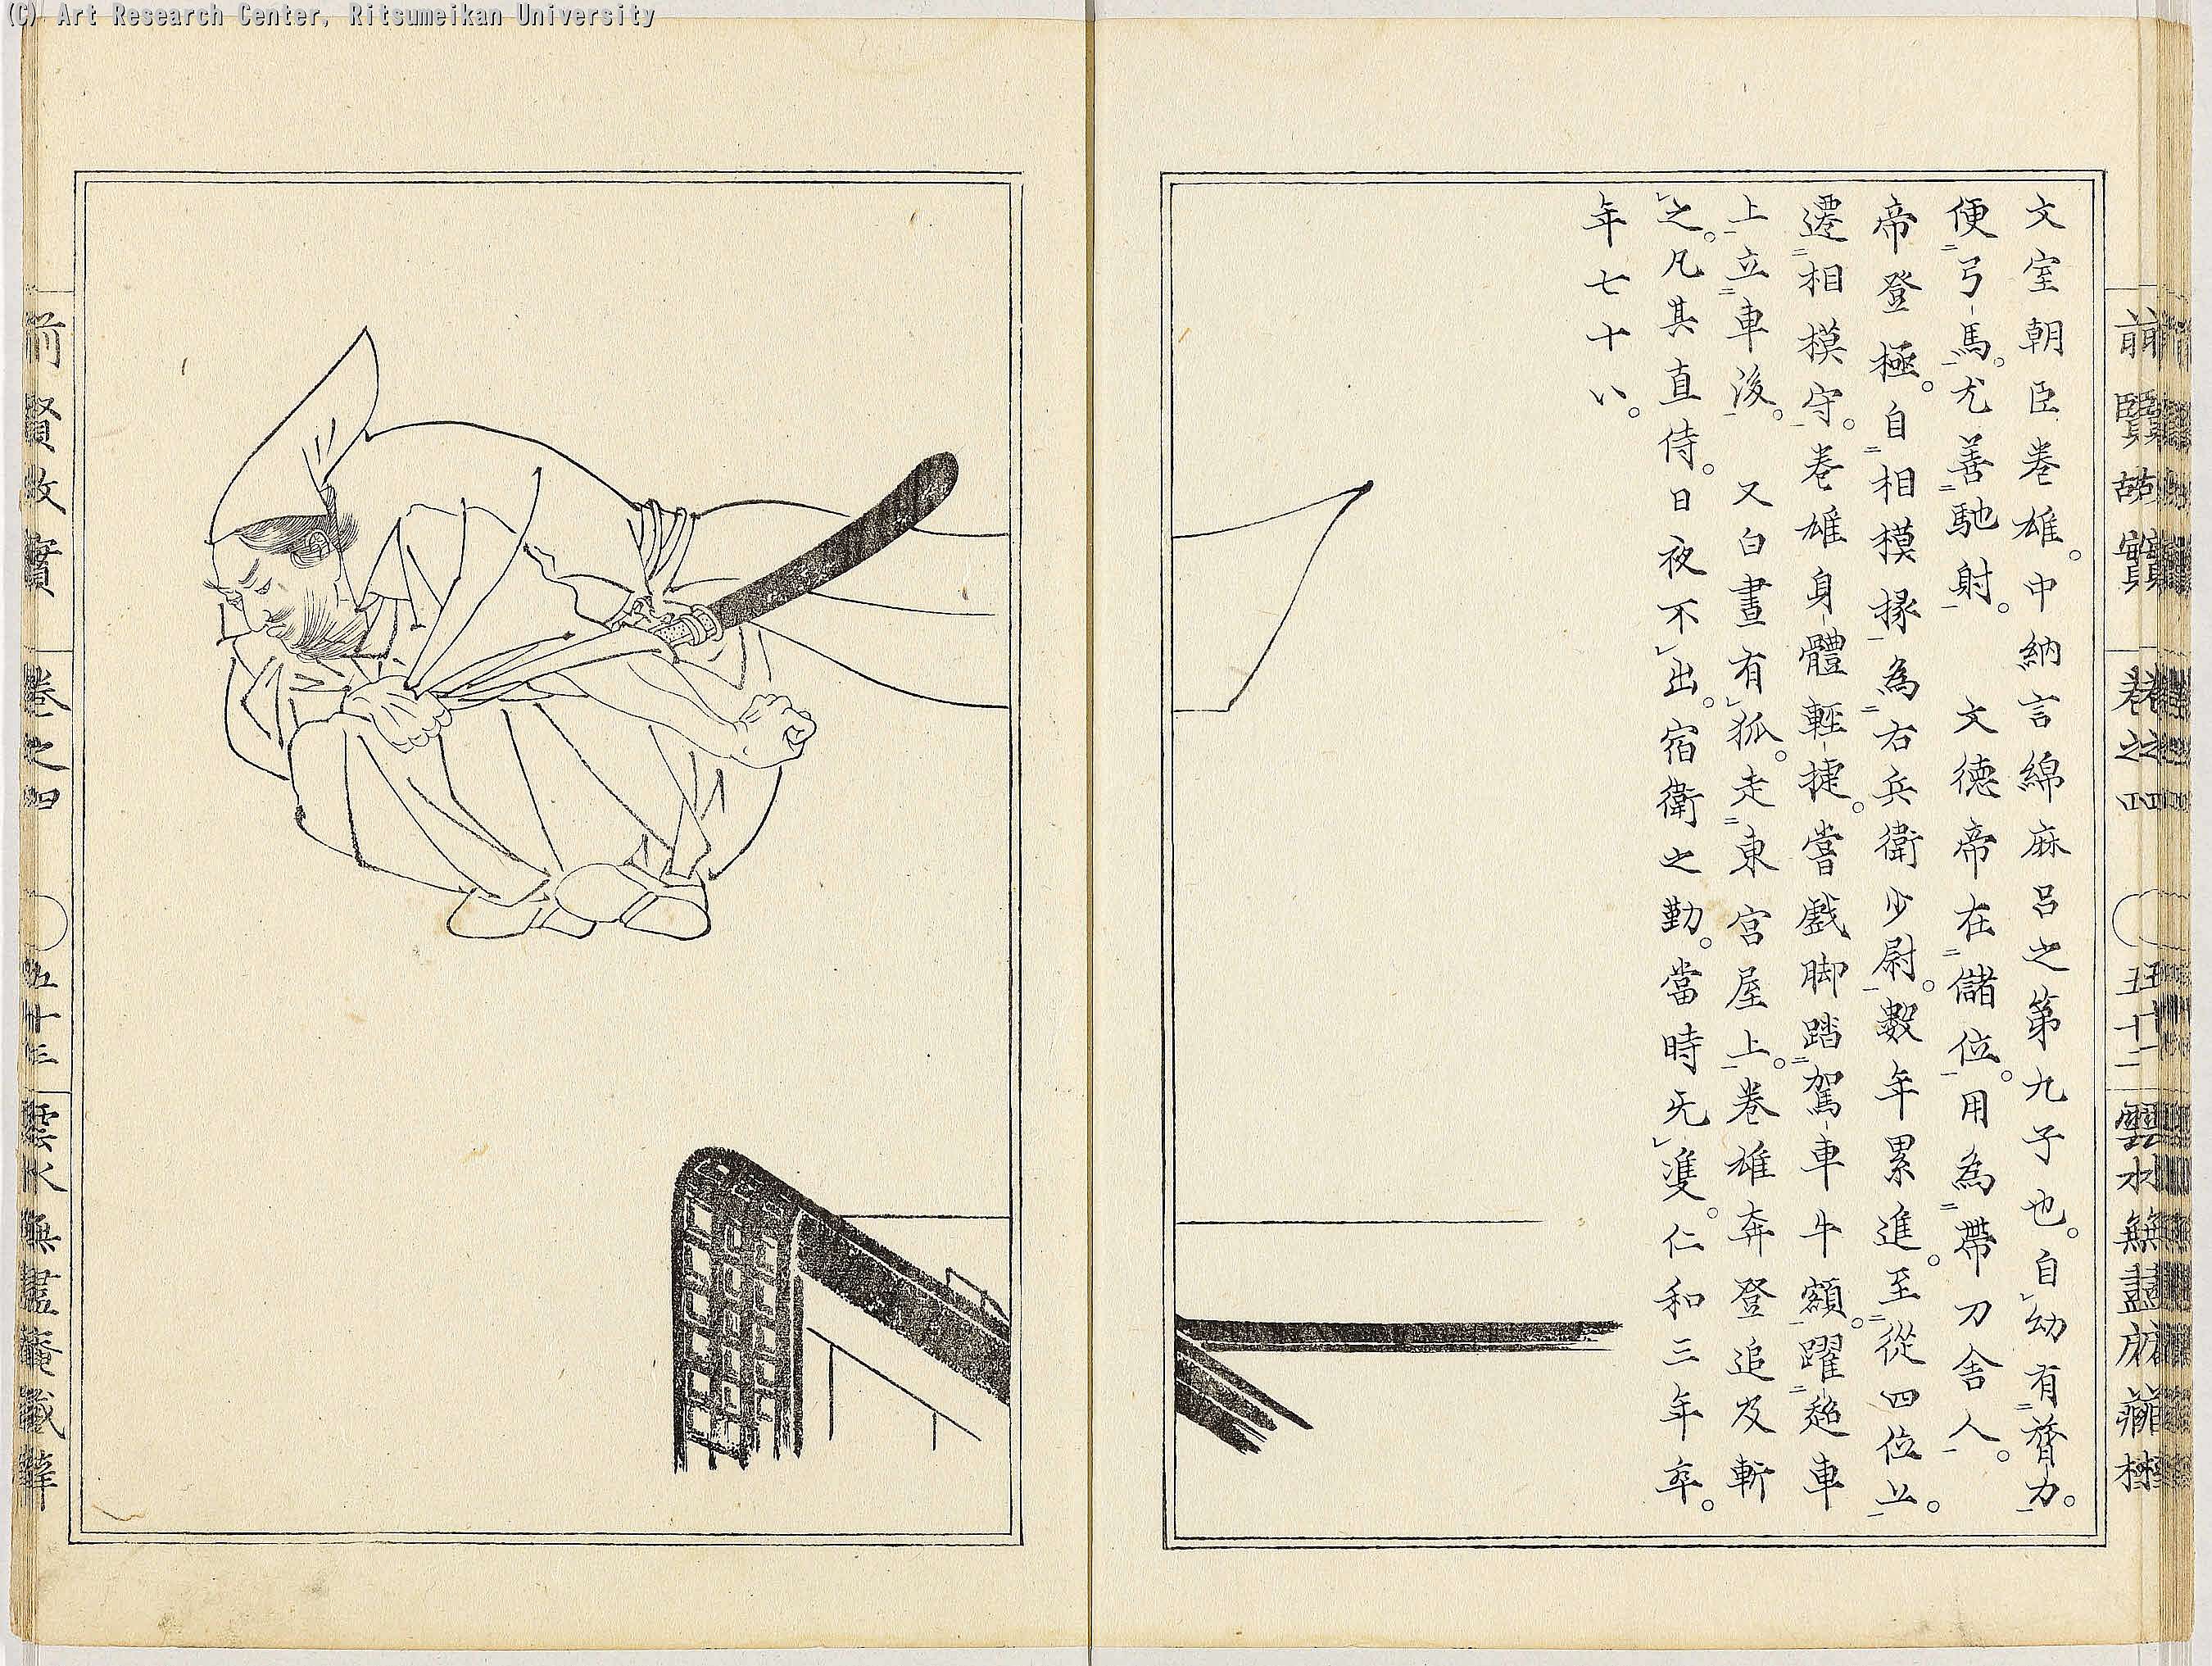 (C) Art Research Center, Ritsumeikan University
前賢故實 卷之四 五十二 雲水無盡庵藏梓
文室朝臣卷雄。中納言綿麻呂之第九子也。自幼有膂力。
便弓馬。尤善馳射。 文德帝在儲位。用為帶刀舍人。
帝登極。自相模掾為右兵衛少尉。數年累進。至從四位上。
遷相模守。卷雄身體輕捷。嘗戲脚踏駕車牛額。躍超車
上立車後。 又白晝有狐。走東宮屋上。卷雄奔登追及斬
之。凡其直侍。日夜不出。宿衛之勤。當時无隻。仁和三年卒。
年七十八。
前賢故實 卷之四 五十三 雲水無盡庵藏梓